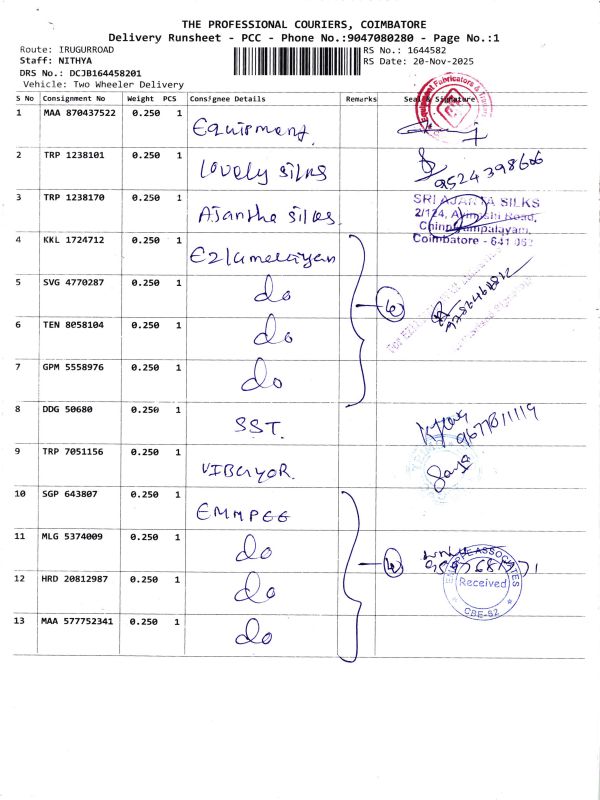 THE PROFESSIONAL COURIERS, COIMBATORE
Delivery Runsheet - PCC - Phone No.:9047080280 - Page No.:1
Route: IRUGURROAD
RS No.: 1644582
Staff: NITHYA
RS Date: 20-Nov-2025
DRS No.: DCJB164458201
Vehicle: Two Wheeler Delivery
S No Consignment No Weight PCS Consignee Details Remarks Seal & Signature
1 MAA 870437522 0.250 1 Equipment
2 TRP 1238101 0.250 1 Lovely silks 9524398606
3 TRP 1238170 0.250 1 Ajantha silks.
SRI AJANTA SILKS
2/124, Road,
Chinniyampalayam,
Coimbatore - 641 062
4 KKL 1724712 0.250 1
5 SVG 4770287 0.250 1 do
6 TEN 8058104 0.250 1 do
7 GPM 5558976 0.250 1 do
8 DDG 50680 0.250 1 SST. 9677811119
9 TRP 7051156 0.250 1 VIBGYOR.
10 SGP 643807 0.250 1 EMMPEE
11 MLG 5374009 0.250 1 do
12 HRD 20812987 0.250 1 do
13 MAA 577752341 0.250 1 do
ASSOCIATES
Received
CBE-62